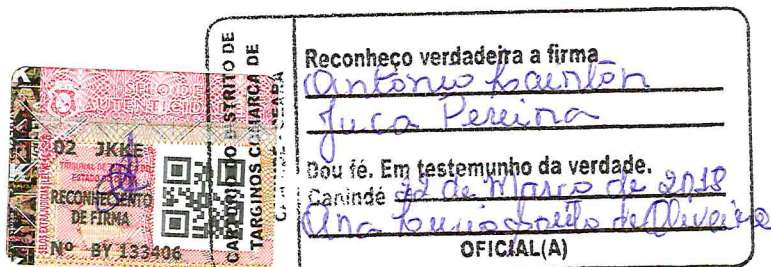 SELO DE
AUTENTICIDADE
02 JKKE
TRIBUNAL DE
ESTADO
RECONHECIMENTO
DE FIRMA
Nº BY 133406
CARTÓRIO DO DISTRITO DE
TARGINOS COMARCA DE
CEARÁ
Reconheço verdadeira a firma
Antonio
Juca Pereira
Dou fé. Em testemunho da verdade.
Canindé 22 de Março de 2018
Ana de Oliveira
OFICIAL(A)